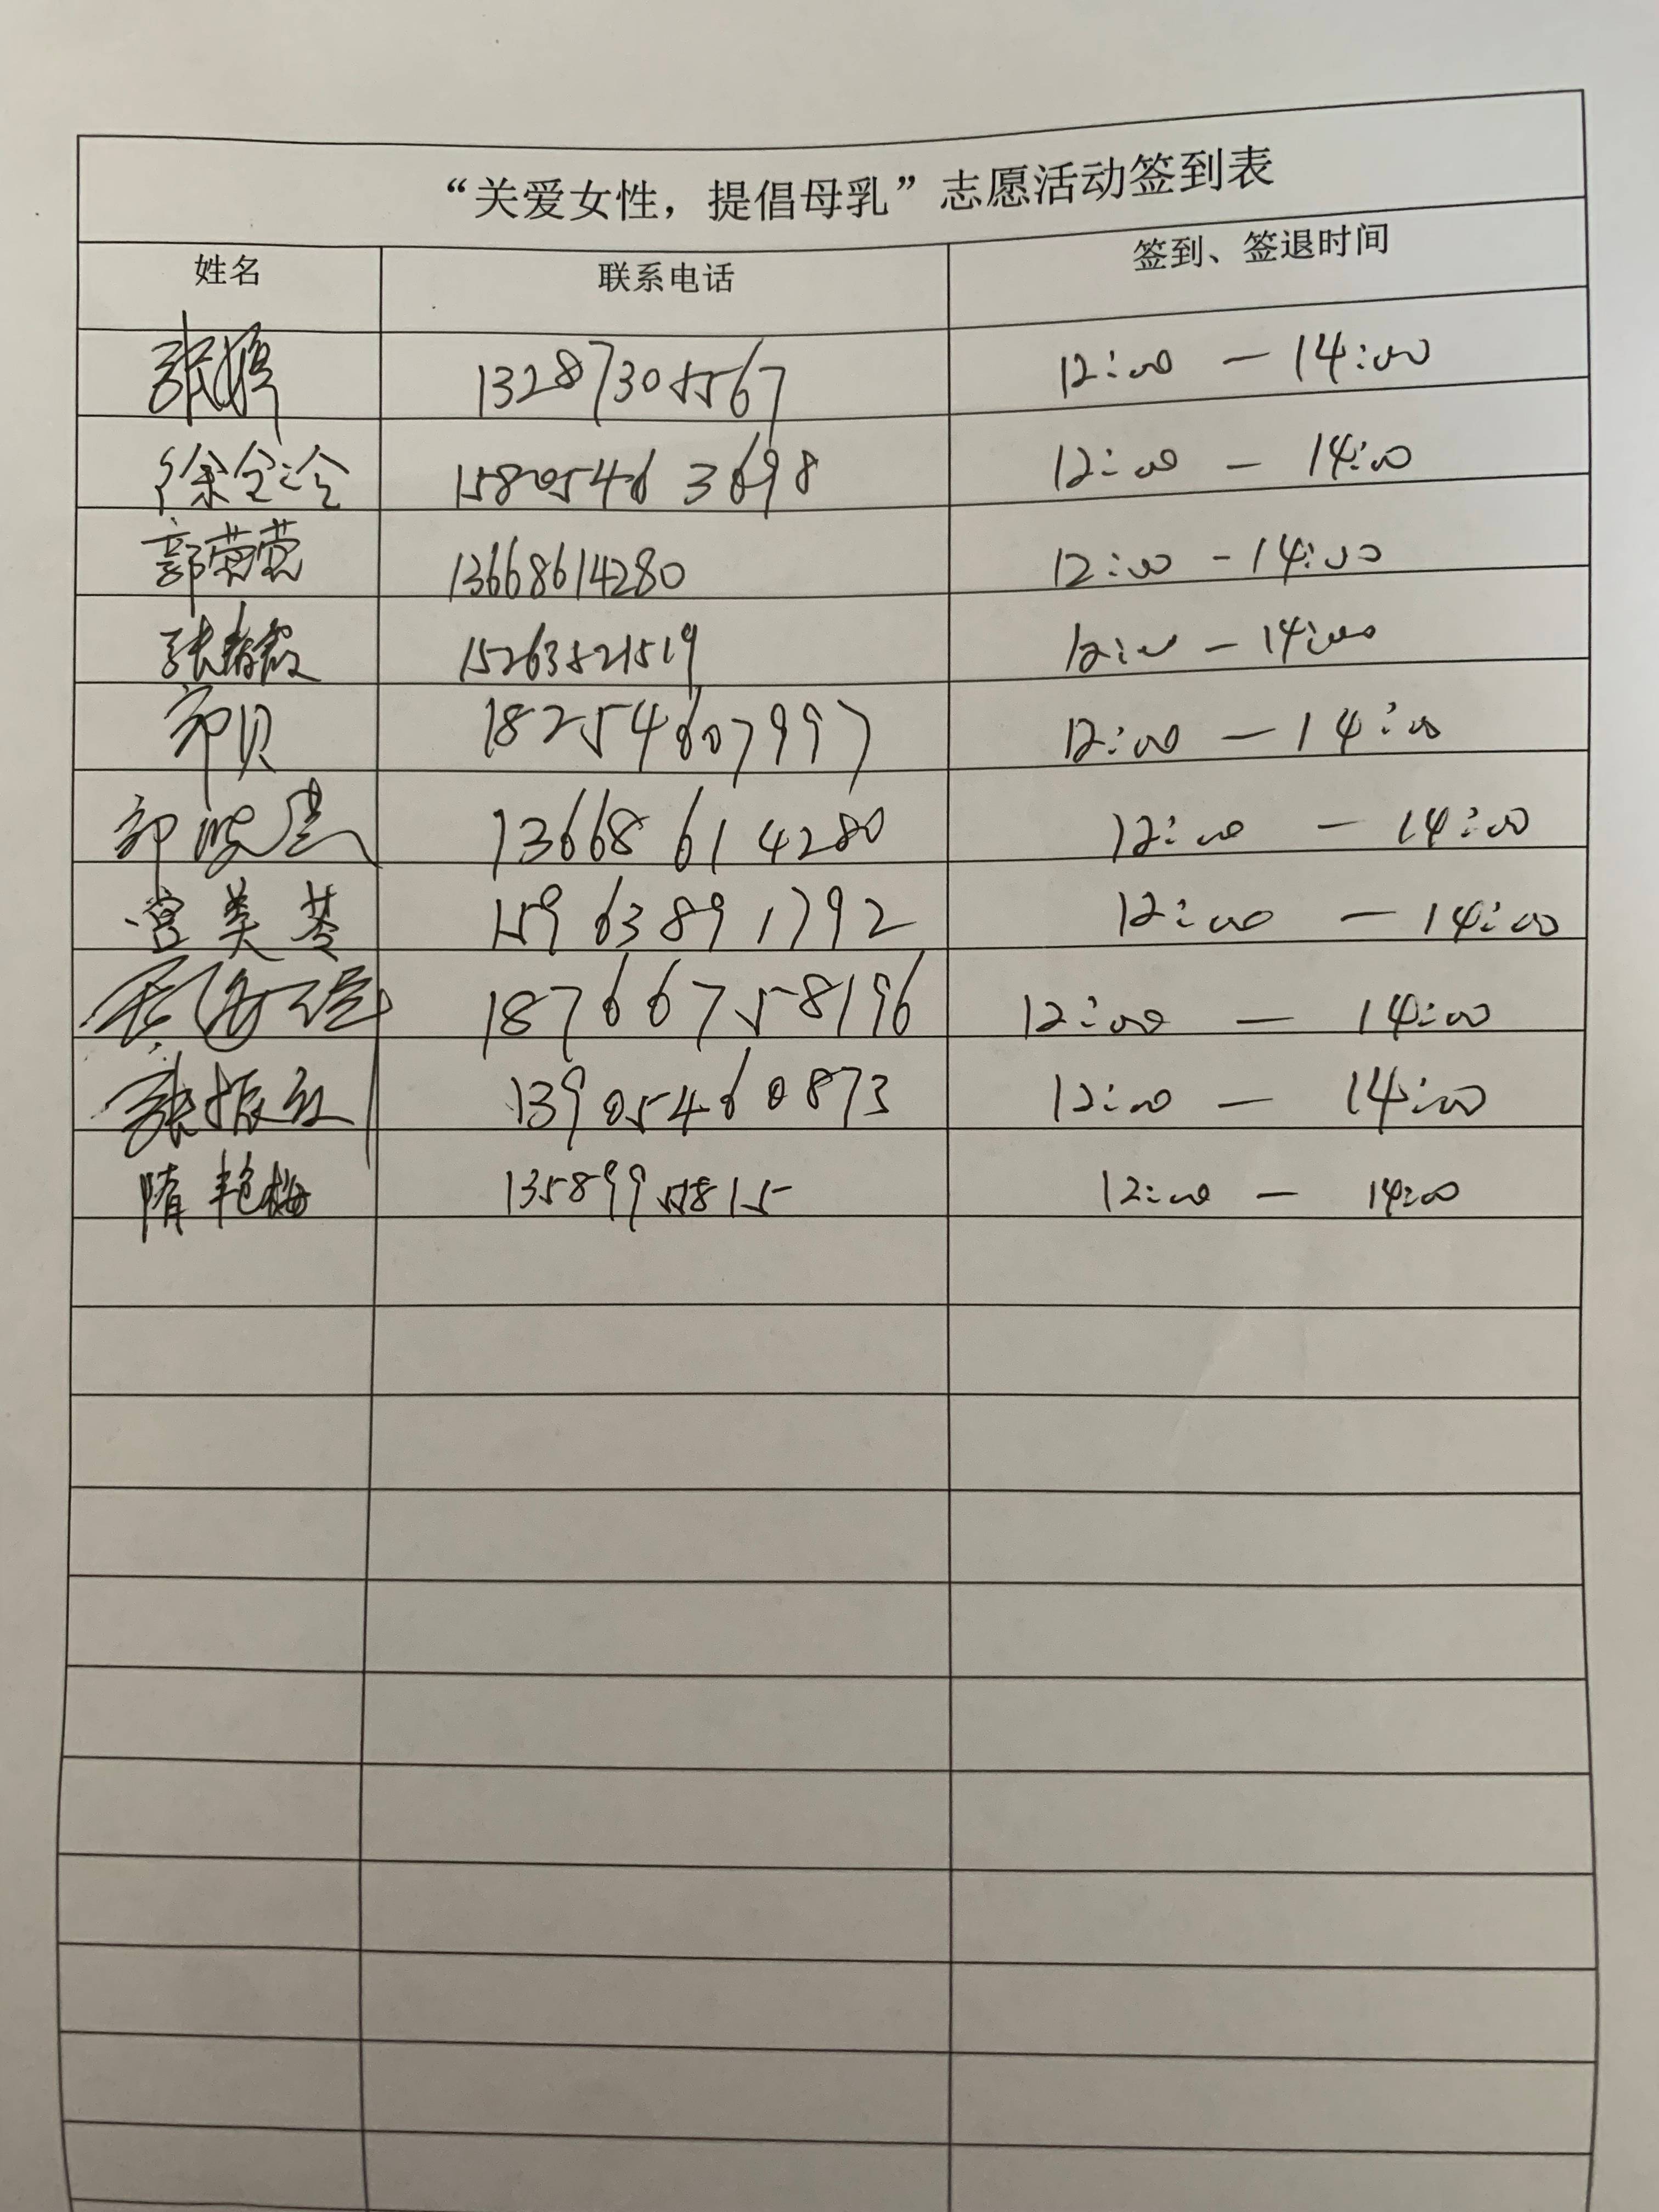 “关爱女性，提倡母乳”志愿活动签到表
姓名 联系电话 签到、签退时间
张婷 13287305567 12:00 — 14:00
徐全泠 15805463698 12:00 — 14:00
郭蓉蓉 13668614280 12:00 - 14:00
张 15263521519 12:00 - 14:00
郭贝 18254607997 12:00 — 14:00
郭 13668614280 12:00 — 14:00
宫美苓 15963891792 12:00 — 14:00
18766758196 12:00 — 14:00
张振红 13905460873 12:00 — 14:00
隋艳梅 13589955815 12:00 — 14:00